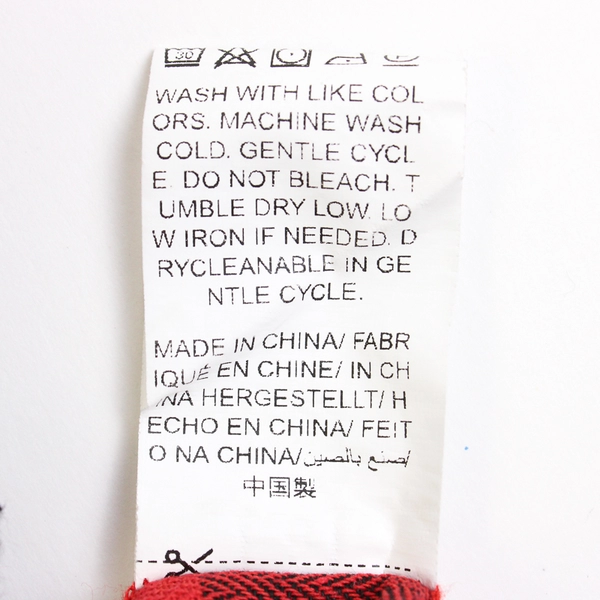 30
WASH WITH LIKE COL
ORS. MACHINE WASH
COLD. GENTLE CYCL
E. DO NOT BLEACH. T
UMBLE DRY LOW. LO
W IRON IF NEEDED. D
RYCLEANABLE IN GE
NTLE CYCLE.
MADE IN CHINA/ FABR
IQUÉ EN CHINE/ IN CH
INA HERGESTELLT/ H
ECHO EN CHINA/ FEIT
O NA CHINA/صنع بالصين/
中国製